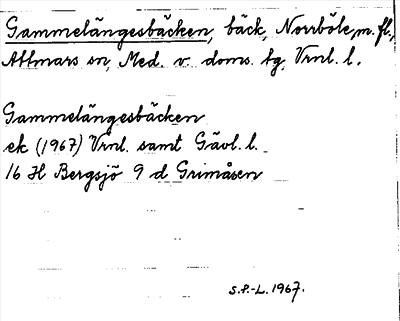 Gammelängesbäcken, bäck, Norrböle, m. fl.,
Attmars sn, Med. v. doms. tg, Vrnl. l.
Gammelängesbäcken
ek (1967) Vrnl. samt Gävl. l.
16 H Bergsjö 9 d Grimåsen
S.P.-L. 1967.